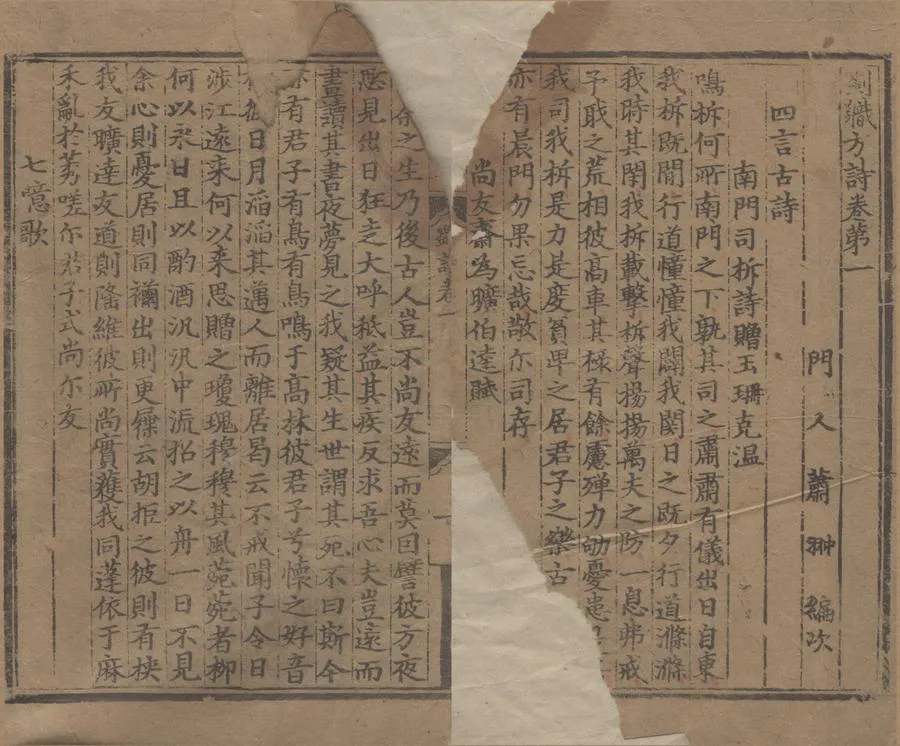 門人蕭翀編次
四言古詩
南門司柝詩贈玉珊克温
鳴柝何所南門之下孰其司之肅肅有儀出日自東
我柝既閒行道憧憧我闢我関日之既夕行道滌滌
我時其閉我柝載擊柝聲揚揚萬夫之防一息弗戒
予戢之荒相彼高車其禄有餘慮殫力劬憂患
我司我柝是力是度負畀之居君子之樂古
亦有晨門勿果忘哉敬尓司存
尚友齋為曠伯逵賦
余之生乃後古人豈不尚友遠而莫因譬彼方夜
惡見出日狂走大呼秪益其疾反求吾心夫豈遠而
晝讀其書夜夢見之我疑其生世謂其死不曰斯今
亦有君子有鳥有鳥鳴于高林彼君子兮懐之好音
彼日月滔滔其邁人而離居曷云不戒聞子令日
涉江遠来何以来思贈之瓊瑰穆穆其風菀菀者柳
何以永日且以酌酒汎汎中流招之以舟一日不見
余心則憂居則同襧出則更屧云胡拒之彼則有柍
我友曠逵友道則隆維彼所尚實獲我同蓬依于麻
禾亂於莠嗟尓君子式尚尓友
七憶歌